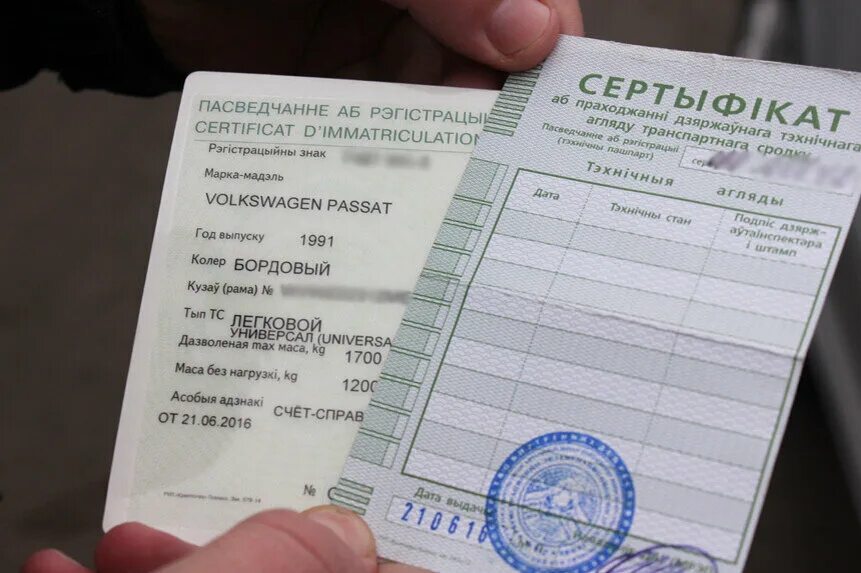 ПАСВЕДЧАННЕ АБ РЭГІСТРАЦЫІ
CERTIFICAT D'IMMATRICULATION
Рэгістрацыйны знак
Марка-мадэль
VOLKSWAGEN PASSAT
Год выпуску 1991
Колер БОРДОВЫЙ
Кузаў (рама) №
Тып ТС ЛЕГКОВОЙ
УНИВЕРСАЛ (UNIVERSA
Дазволеная max маса, kg 1700
Маса без нагрузкі, kg 1200
Асобыя адзнакі СЧЁТ-СПРАВ
ОТ 21.06.2016
№
СЕРТЫФІКАТ
аб праходжанні дзяржаўнага тэхнічнага
агляду транспартнага сродку
Пасведчанне аб рэгістрацыі
(тэхнічны пашпарт)
сер
Тэхнічныя агляды
Дата
Тэхнічны стан
Подпіс дзярж-
аўтаінспектара
і штамп
Дата выдачы
210616